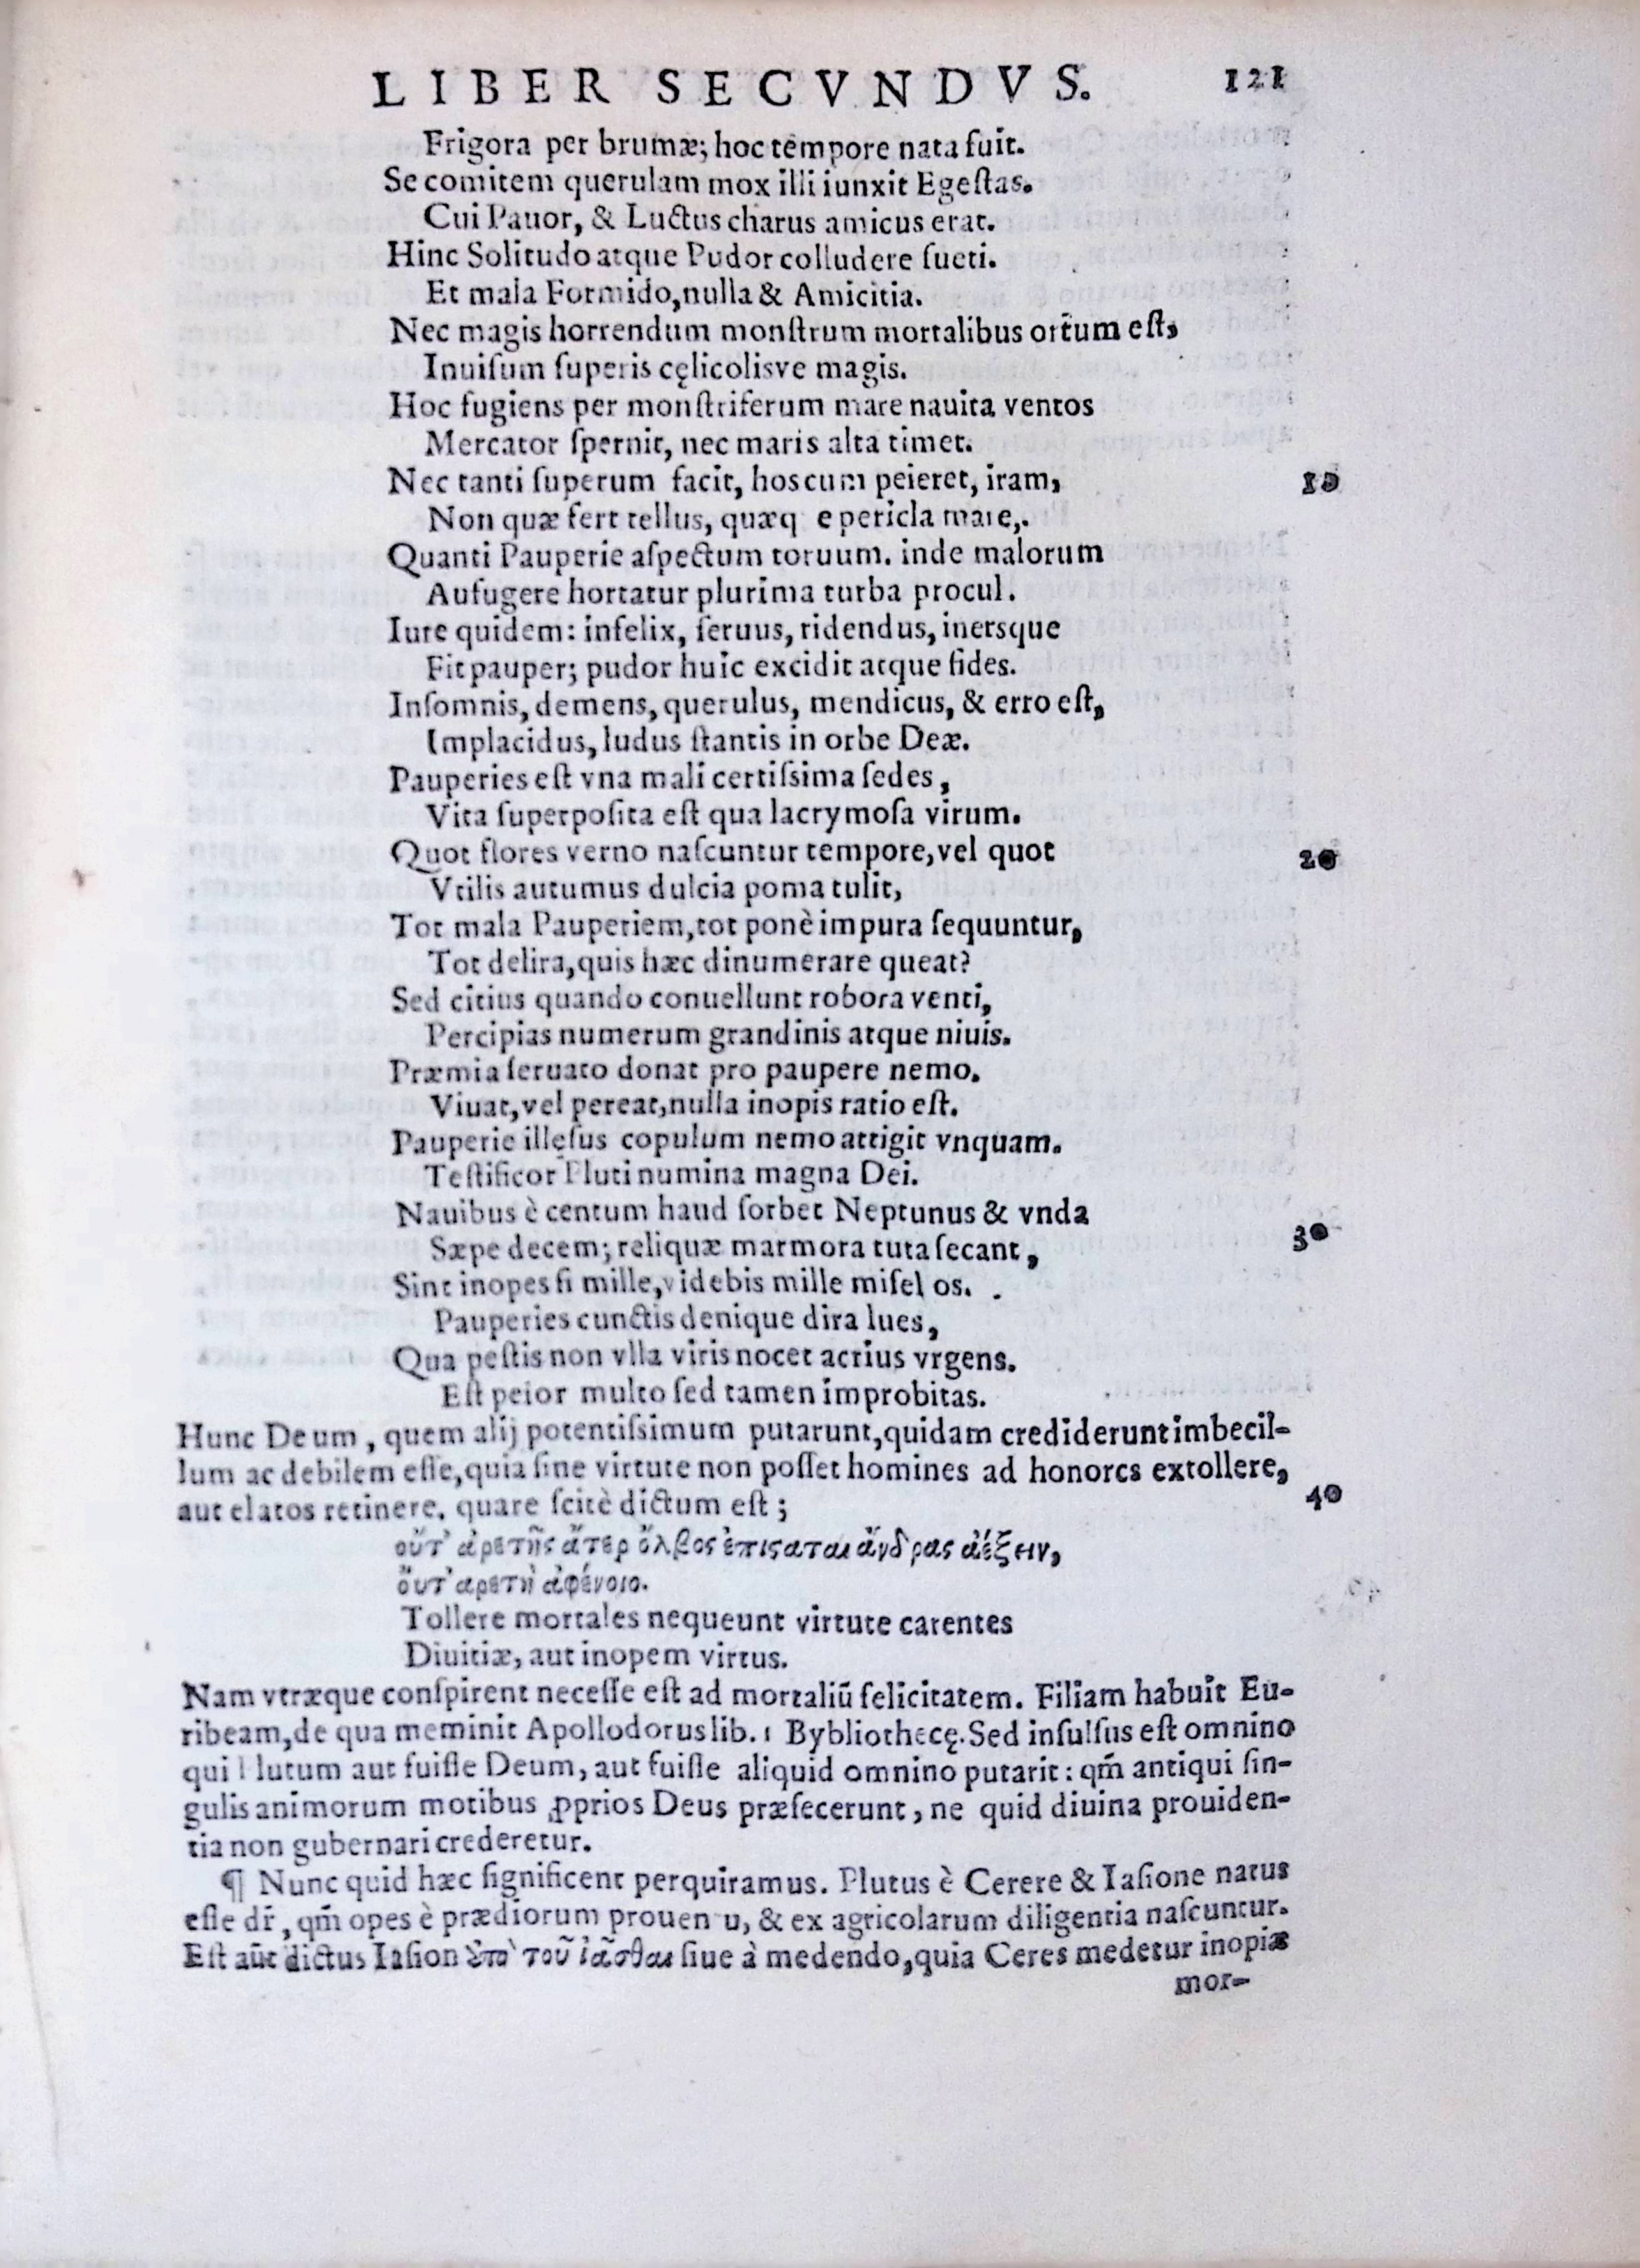 LIBER SECVNDVS. 121
Frigora per brumæ; hoc tempore nata fuit.
Se comitem querulam mox illi iunxit Egeſtas.
Cui Pauor, & Luctus charus amicus erat.
Hinc Solitudo atque Pudor colludere ſueti.
Et mala Formido, nulla & Amicitia.
Nec magis horrendum monſtrum mortalibus ortum eſt,
Inuiſum ſuperis cęlicolisve magis.
Hoc fugiens per monſtriferum mare nauita ventos
Mercator ſpernit, nec maris alta timet.
Nec tanti ſuperum facit, hos cum peieret, iram, 10
Non quæ fert tellus, quæq e pericla mare,.
Quanti Pauperie aſpectum toruum. inde malorum
Aufugere hortatur plurima turba procul.
Iure quidem: infelix, ſeruus, ridendus, inersque
Fit pauper; pudor huic excidit atque fides.
Inſomnis, demens, querulus, mendicus, & erro eſt,
Implacidus, ludus ſtantis in orbe Deæ.
Pauperies eſt vna mali certiſsima ſedes,
Vita ſuperpoſita eſt qua lacrymoſa virum.
Quot flores verno naſcuntur tempore, vel quot 20
Vtilis autumus dulcia poma tulit,
Tot mala Pauperiem, tot ponè impura ſequuntur,
Tot delira, quis hæc dinumerare queat?
Sed citius quando conuellunt robora venti,
Percipias numerum grandinis atque niuis.
Præmia ſeruato donat pro paupere nemo.
Viuat, vel pereat, nulla inopis ratio eſt.
Pauperie illęſus copulum nemo attigit vnquam.
Teſtificor Pluti numina magna Dei.
Nauibus è centum haud ſorbet Neptunus & vnda
Sæpe decem; reliquæ marmora tuta ſecant, 30
Sint inopes ſi mille, videbis mille miſel os.
Pauperies cunctis denique dira lues,
Qua peſtis non vlla viris nocet acrius vrgens.
Eſt peior multo ſed tamen improbitas.
Hunc Deum, quem alij potentiſsimum putarunt, quidam crediderunt imbecil-
lum ac debilem eſſe, quia ſine virtute non poſſet homines ad honores extollere,
aut elatos retinere. quare ſcitè dictum eſt; 40
οὔτ' ἀρετῆς ἄτερ ὄλβος ἐπίσαται ἄνδρας ἀέξειν,
ὄυτ' αρετὴ ἀφένοιο.
Tollere mortales nequeunt virtute carentes
Diuitiæ, aut inopem virtus.
Nam vtræque conſpirent neceſſe eſt ad mortaliū felicitatem. Filiam habuit Eu-
ribeam, de qua meminit Apollodorus lib. 1 Bybliothecę. Sed inſulſus eſt omnino
qui Plutum aut fuiſſe Deum, aut fuiſſe aliquid omnino putarit: qm̄ antiqui ſin-
gulis animorum motibus ꝓprios Deus præfecerunt, ne quid diuina prouiden-
tia non gubernari crederetur.
¶ Nunc quid hæc ſignificent perquiramus. Plutus è Cerere & Iaſione natus
eſſe dr̄, qm̄ opes è prædiorum prouen u, & ex agricolarum diligentia naſcuntur.
Eſt aūt dictus Iaſion ἀπὸ τοῦ ἰᾶσθαι ſiue à medendo, quia Ceres medetur inopiæ
mor-